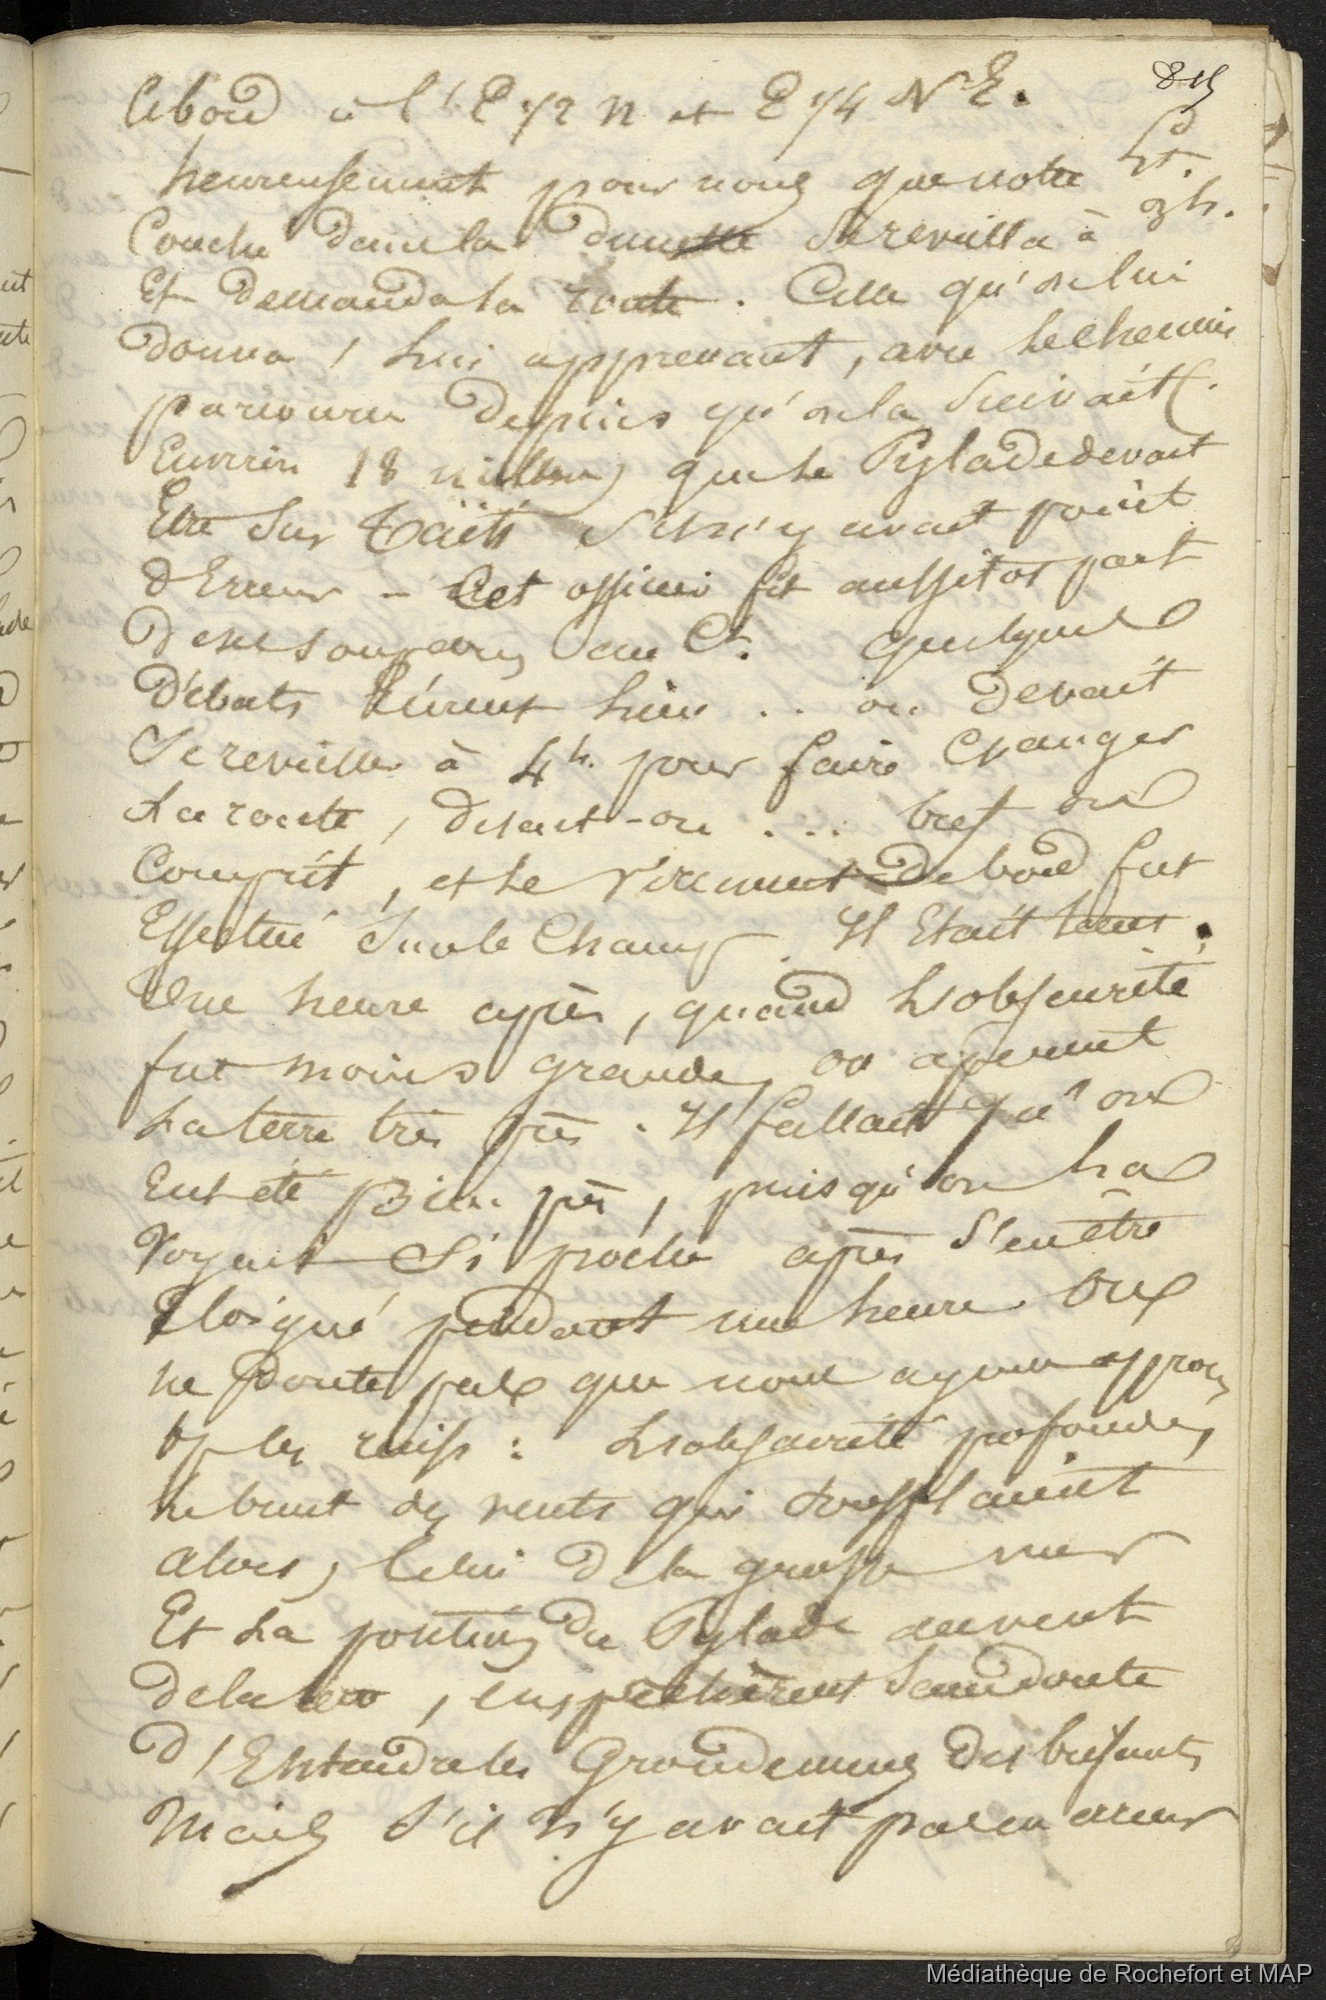 815
le bord à l'E 1/2 N et E 1/4 N E.
heureusement pour nous que notre Lt.
Couché dans la dunette se reveilla à 3h.
Et demanda la route. Celle qu'on lui
donna, lui apprenant, avec le chemin
parcouru depuis qu'on la suivait (
Environ 18 milles) que le Pylade devait
Etre sur Taïti s'il n'y avait point
d'Erreur - Cet officier fit aussitot part
de ses soupçons au Ct. quelques
débats eûrent lieu .. on devait
se reveiller à 4h. pour faire changer
La route, disait-on ... bref on
Comprit, et le virement de bord fut
Effectué sur le Champ. Il Etait tems.
Une heure après, quand L'obscurité
fut moins grande, on aperçut
La terre très près. Il fallait qu'on
Eut été Bien près, puisqu'on la
Voyait si proche après s'en être
Eloigné pendant une heure. On
ne doute pas que nous ayons approché
les récifs : L'obscurité profonde,
le bruit des vents qui soufflaient
alors, Celui de la grosse mer
Et La position du Pylade au vent
de la terre, empêchèrent sans doute
d'Entendre les Grondemens des brisants
Mais s'il n'y avait pas eu erreur
Médiathèque de Rochefort et MAP